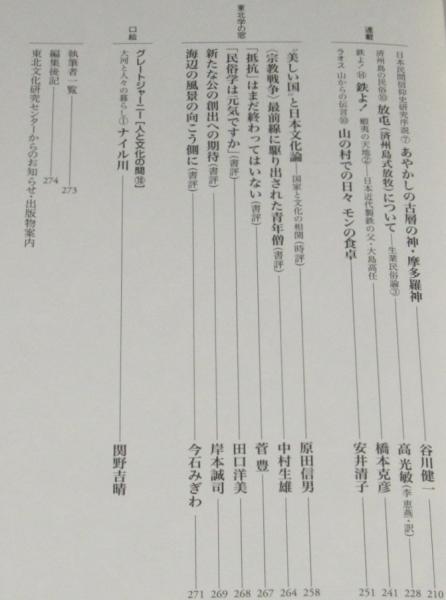 連載
日本民間信仰史研究序説⑦ あやかしの古層の神・摩多羅神 谷川健一 210
済州島の民俗⑩ 放屯(済州島式放牧)について 生業民俗論③ 高 光敏(李 恵燕・訳) 228
鉄よ!⑭ 鉄よ! 蝦夷の天地② 日本近代製鉄の父・大島高任 橋本克彦 241
ラオス 山からの伝言⑩ 山の村での日々 モンの食卓 安井清子 251
東北学の窓
“美しい国”と日本文化論 国家と文化の相関(時評) 原田信男 258
〈宗教戦争〉最前線に駆り出された青年僧(書評) 中村生雄 264
「抵抗」はまだ終わってはいない(書評) 菅 豊 267
「民俗学は元気ですか」(書評) 田口洋美 268
新たな公の創出への期待(書評) 岸本誠司 269
海辺の風景の向こう側に(書評) 今石みぎわ 271
口絵
グレートジャーニー「人と文化の間⑱」
大河と人々の暮らし① ナイル川 関野吉晴
執筆者一覧 273
編集後記 274
東北文化研究センターからのお知らせ・出版物案内